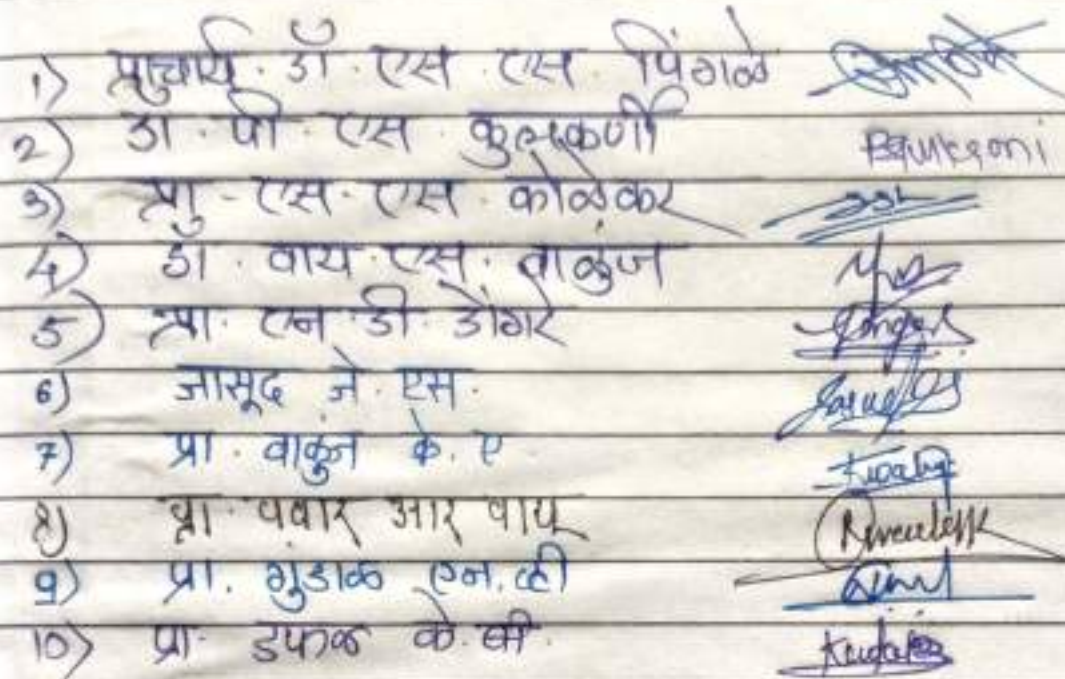 1) प्राचार्य. डॉ. एस. एस. पिंगळे
2) डॉ. पी एस कुलकर्णी Bqulkarni
3) प्रा - एस. एस. कोळेकर SSK
4) डॉ. वाय. एस. वाळुंज
5) प्रा. एन डी. डोंगरे
6) जासूद जे. एस.
7) प्रा. वाळुंज के. ए
8) प्रा. पवार आर वाय
9) प्रा. गुडाळ एन. व्ही
10) प्रा. डफळ के. बी.